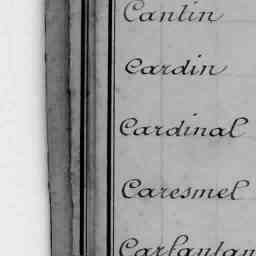 Cantin
Cardin
Cardinal
Caresmel